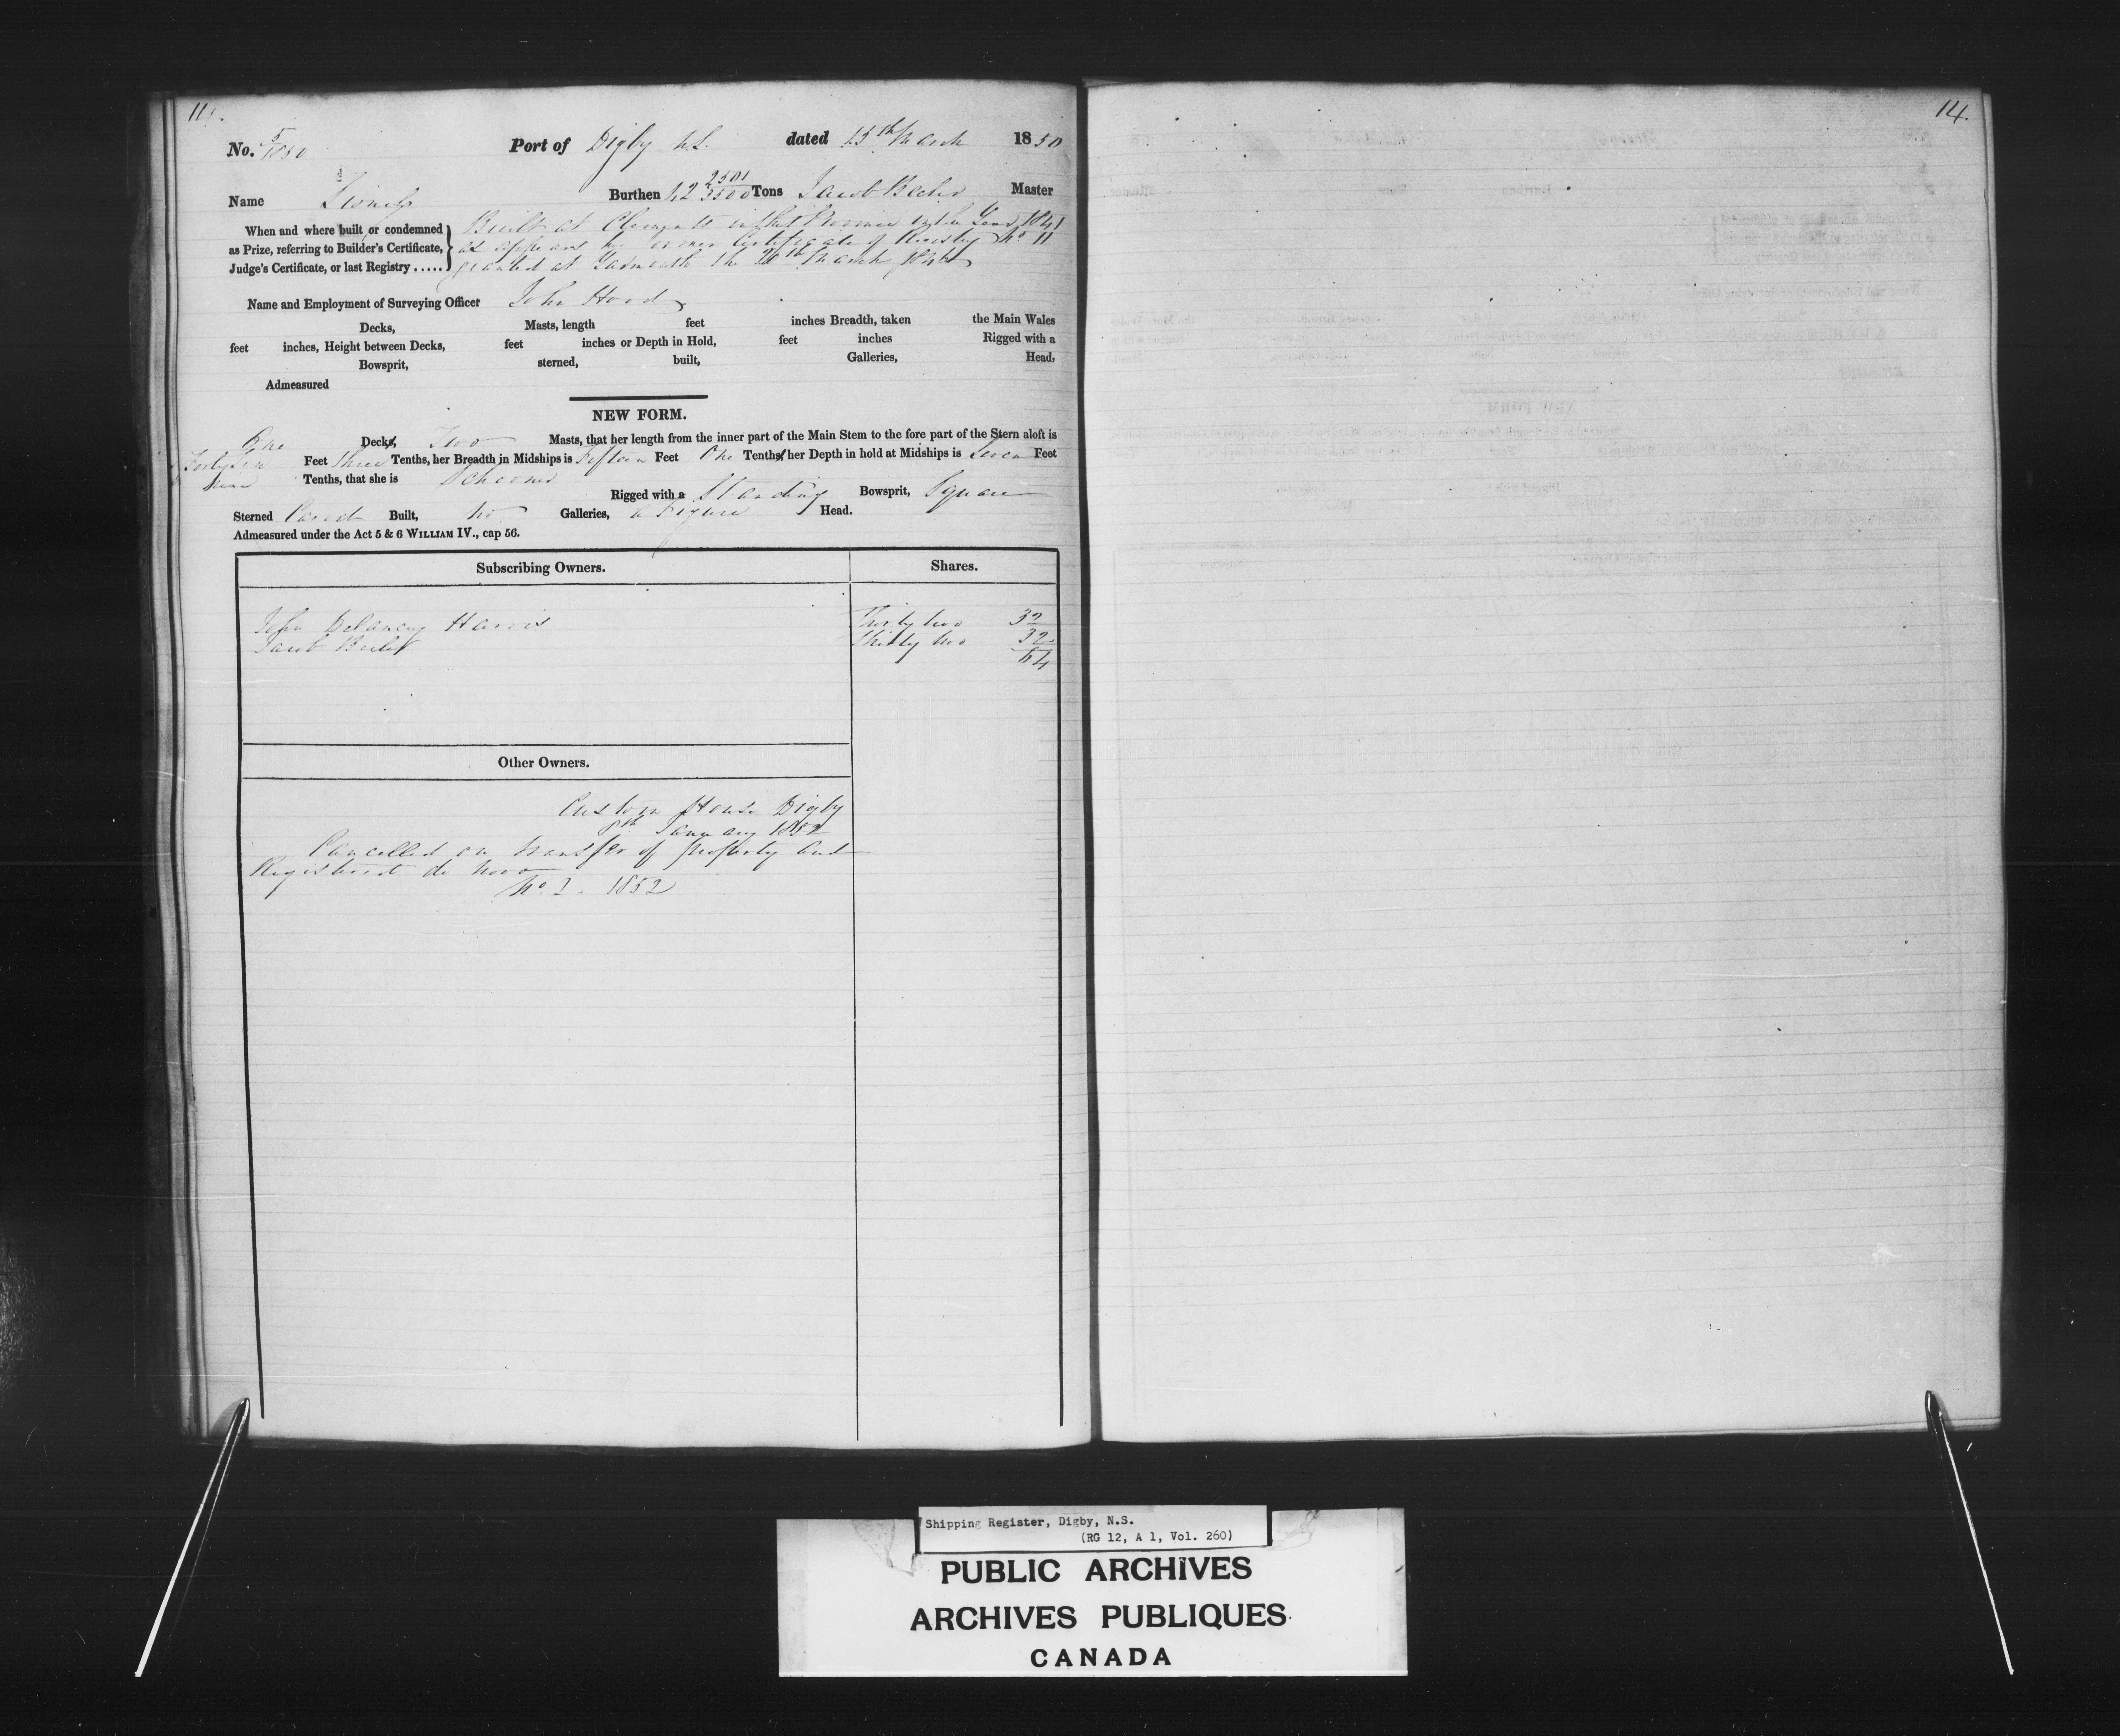 14.
No. 5/1850 Port of Digby N.S. dated 15th March 1850
Name Burthen 42 2501/3500 Tons Jacob Master
When and where built, or condemned
as Prize, referring to Builder's Certificate,
Judge's Certificate, or last Registry .....
Built at Clements in that Province in the Year 1841
as appears by former Certificate of Registry No 11
granted at Yarmouth the March
Name and Employment of Surveying Officer John Hood
Decks, Masts, length feet inches Breadth, taken the Main Wales
feet inches, Height between Decks, feet inches or Depth in Hold, feet inches Rigged with a
Bowsprit, sterned, built, Galleries, Head,
Admeasured
NEW FORM.
One Decks, Two Masts, that her length from the inner part of the Main Stem to the fore part of the Stern aloft is
Feet three Tenths, her Breadth in Midships is Fifteen Feet One Tenths, her Depth in hold at Midships is Seven Feet
Tenths, that she is Schooner
Rigged with a Standing Bowsprit, Square
Sterned Carvel Built, No Galleries, a Figure Head.
Admeasured under the Act 5 & 6 WILLIAM IV., cap 56.
Subscribing Owners. Shares.
John Delancey Harris Thirty two 32
Jacob Thirty two 32
64
Other Owners.
Custom House Digby
8th January 1852
Cancelled on transfer of property and
Registered de novo
No. 1852
Shipping Register, Digby, N.S.
(RG 12, A 1, Vol. 260)
PUBLIC ARCHIVES
ARCHIVES PUBLIQUES
CANADA